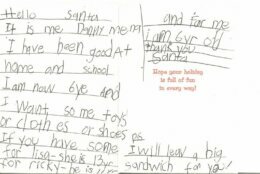 Hello Santa
It is me Danny
I have been good At
home and school
I am now 6yr And
I Want some toys
or clothes or shoes ps.
If you have some
for lisa-she is 13yr
for ricky-he is
and for me
I am 6yr old
thank you
Santa
Hope your holiday
is full of fun
in every way!
I will leav a big
sandwich for you!